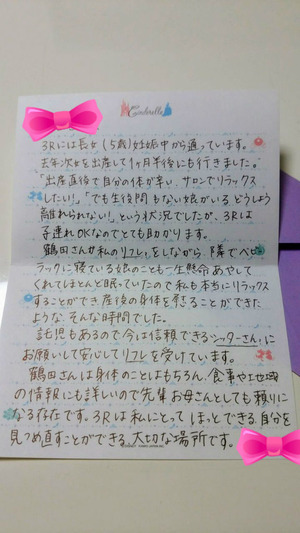 Cinderella
3Rには長女(5歳)妊娠中から通っています。
去年次女を出産して1ヶ月半後にも行きました。
「出産直後で自分の体が辛い、サロンでリラックス
したい!」「でも生後間もない娘がいる どうしよう
離れられない!」という状況でしたが、3Rは
子連れOKなのでとても助かります。
鶴田さんが私のリフレをしながら、隣でベビー
ラックに寝ている娘のことも一生懸命あやして
くれてほとんど眠っていたので私も本当にリラックス
することができ産後の身体を労ることができた
ような、そんな時間でした。
託児もあるので今は信頼できるシッターさんに
お願いして安心してリフレを受けています。
鶴田さんは身体のことはもちろん、食事や地域
の情報にも詳しいので先輩お母さんとしても頼りに
なる存在です。3Rは私にとって ほっとできる、自分を
見つめ直すことができる、大切な場所です。